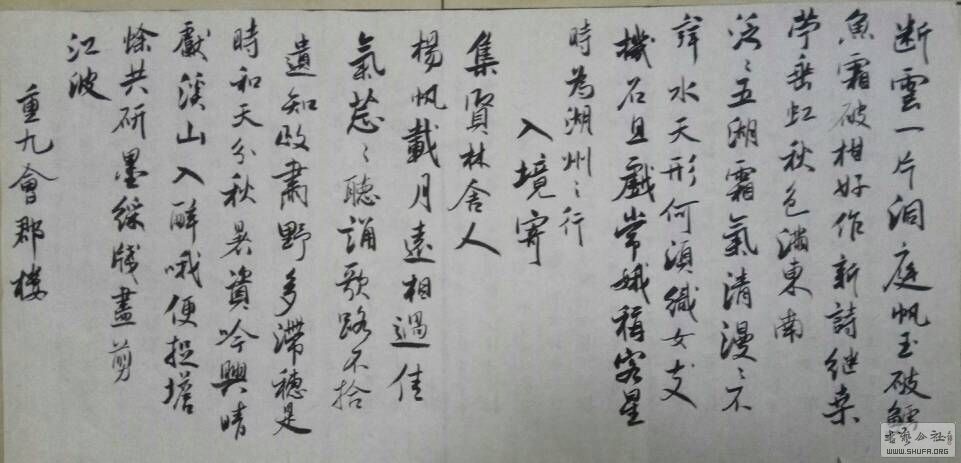 断雲一片洞庭帆玉破鱸
魚霜破柑好作新詩继桑
苧垂虹秋色滿東南
泛〻五湖霜氣清漫〻不
辨水天形何須織女支
機石且戲常娥稱客星
時為湖州之行
入境寄
集賢林舍人
楊帆載月遠相過佳
氣葱〻聽誦歌路不拾
遺知政肅野多滯穗是
時和天分秋暑資吟興晴
獻溪山入醉哦便捉蟾
蜍共研墨綵牋盡剪
江波
重九會郡樓
书法公社
WWW.SHUFA.ORG